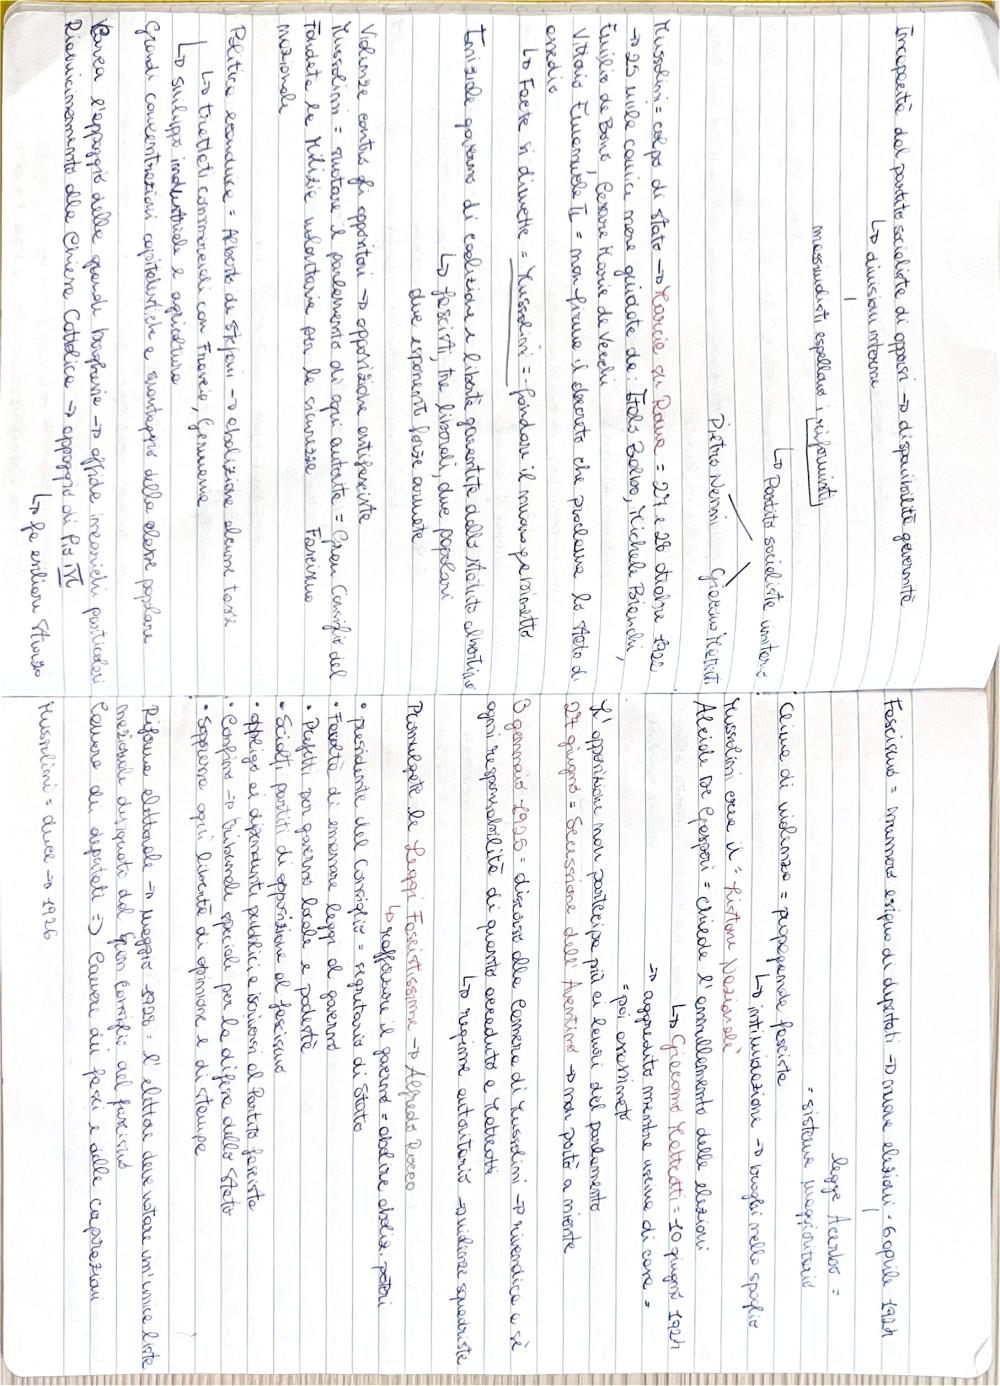 Incapacità del partito socialista di opporsi → disponibilità governità
↳ divisioni interne
massimalisti espellono i riformisti
↳ Partito socialista unitario
Pietro Nenni Giacomo Matteotti
Mussolini = colpo di stato → Marcia su Roma = 27 e 28 ottobre 1922
→ 25 mila camicie nere guidate da: Italo Balbo, Michele Bianchi,
Emilio de Bono, Cesare Maria de Vecchi
Vittorio Emanuele III = non firma il decreto che proclama lo stato di
assedio
↳ Facta si dimette = Mussolini = fondare il nuovo gabinetto
Iniziale governo di coalizione e libertà garantite dallo statuto albertino
↳ fascisti, tre liberali, due popolari
due esponenti forze armate
Violenze contro gli oppositori → opposizione antifascista
Mussolini = svuotare il parlamento di ogni autorità = Gran Consiglio del
Fondata la Milizia volontaria per la sicurezza Fascismo
nazionale
Politica economica = Alberto de Stefani → abolizione alcune tasse
↳ trattati commerciali con Francia, Germania
↳ sviluppo industriale e agricoltura
Grandi concentrazioni capitalistiche e svantaggio della classe popolare
Cerca l'appoggio della grande borghesia → affida incarichi particolari
Riavvicinamento alla Chiesa Cattolica → appoggio di Pio XI
↳ fa esiliare Sturzo
Fascismo = numero esiguo di deputati → nuove elezioni = 6 aprile 1924
legge Acerbo =
= sistema maggioritario
Clima di violenza = propaganda fascista
↳ intimidazione → brogli nello spoglio
Mussolini crea il = Listone Nazionale
Alcide De Gasperi = chiede l'annullamento delle elezioni
↳ Giacomo Matteotti = 10 giugno 1924
→ aggredito mentre usciva di casa =
= poi assassinato
L'opposizione non partecipa più ai lavori del parlamento
27 giugno = Secessione dell'Aventino → non portò a niente
3 gennaio 1925 = discorso alla Camera di Mussolini → rivendica a sè
ogni responsabilità di quanto accaduto a Matteotti
↳ regime autoritario → violenze squadriste
Promulgate le Leggi Fascistissime → Alfredo Rocco
↳ rafforzare il governo = abolire poteri
• presidente del Consiglio = segretario di Stato
• Facoltà di emanare leggi al governo
• Prefetti per governo locale e podestà
• Sciolti partiti di opposizione al fascismo
• obbligo ai dipendenti pubblici a iscriversi al Partito fascista
• Confino → tribunale speciale per la difesa dello Stato
• Soppressa ogni libertà di opinione e di stampa
Riforma elettorale → maggio 1928 = l'elettore deve votare un'unica lista
nazionale designata dal Gran Consiglio del fascismo
Camera di deputati => Camera dei fasci e delle corporazioni
Mussolini = duce → 1926